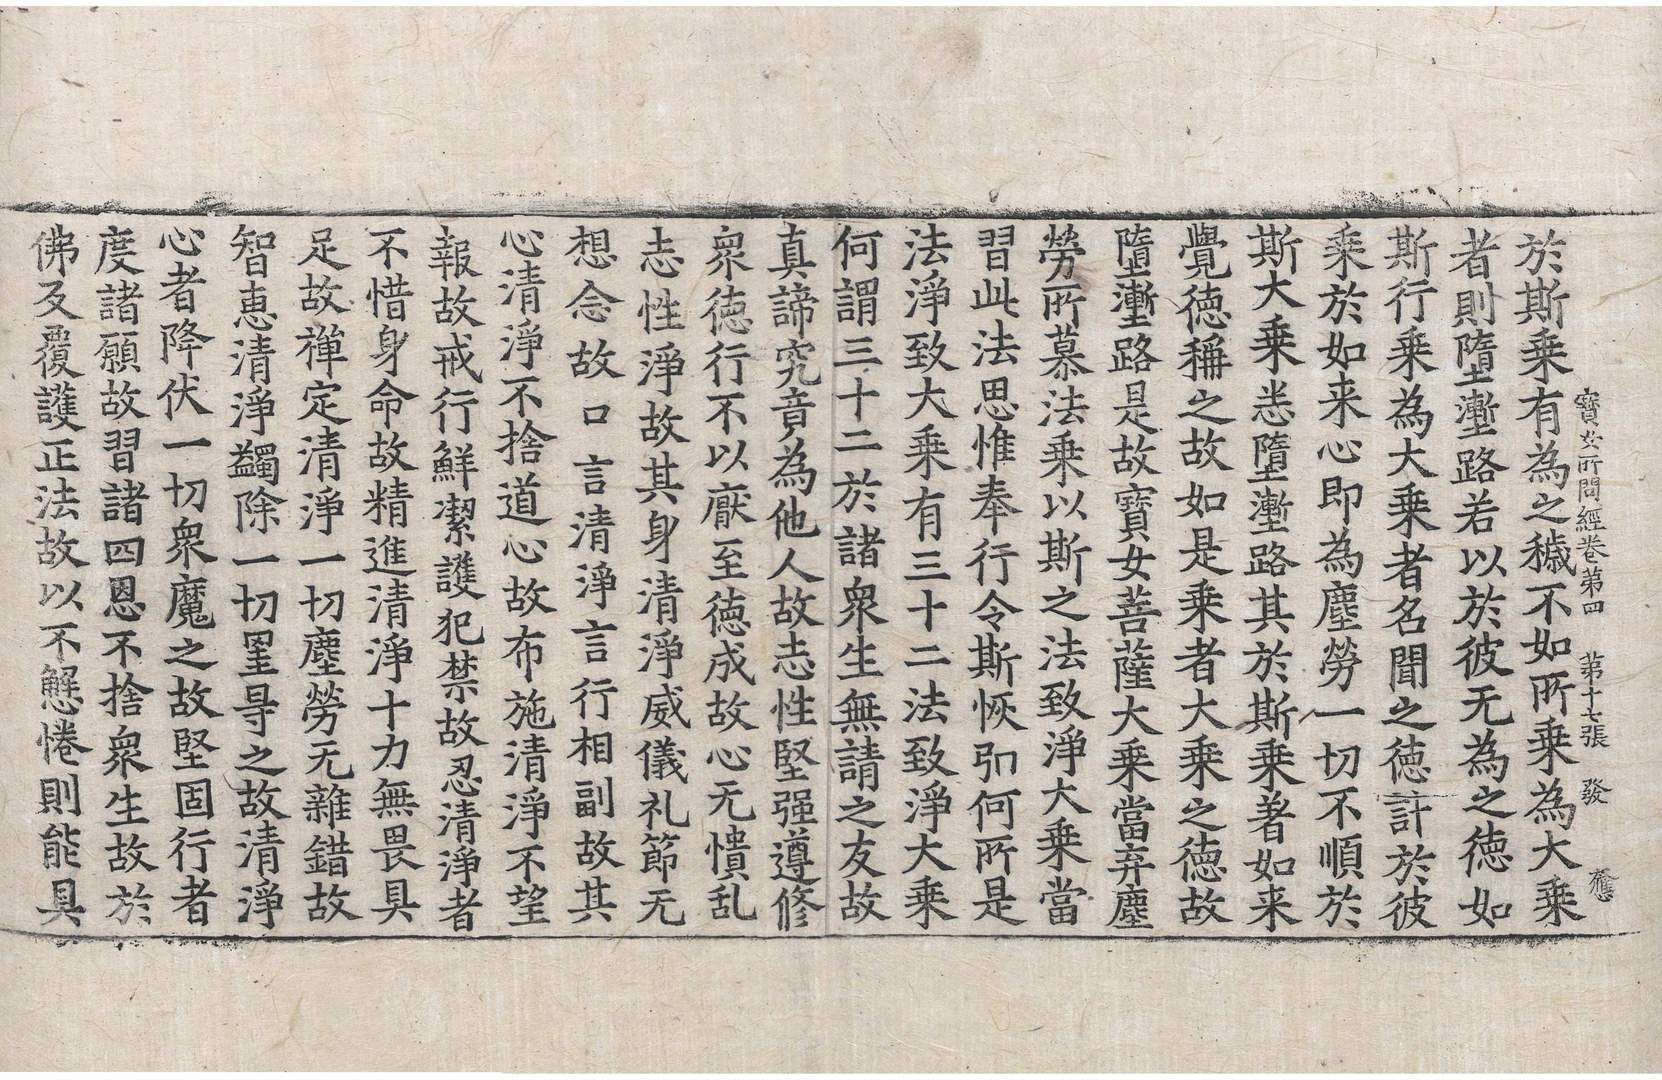 寶女所問經卷第四 第十七張 發
於斯乘有為之穢不如所乘為大乘
者則墮壍路若以於彼无為之德如
斯行乘為大乘者名聞之德計於彼
乘於如来心即為塵勞一切不順於
斯大乘悉墮壍路其於斯乘著如来
覺德稱之故如是乘者大乘之德故
墮壍路是故寶女菩薩大乘當弃塵
勞所慕法乘以斯之法致淨大乘當
習此法思惟奉行令斯恢弘何所是
法淨致大乘有三十二法致淨大乘
何謂三十二於諸衆生無請之友故
真諦究竟為他人故志性堅强遵修
衆德行不以厭至德成故心无憒乱
志性淨故其身清淨威儀礼節无
想念故口言清淨言行相副故其
心清淨不捨道心故布施清淨不望
報故戒行鮮潔護犯禁故忍清淨者
不惜身命故精進清淨十力無畏具
足故禅定清淨一切塵勞无雜錯故
智恵清淨蠲除一切罣㝵之故清淨
心者降伏一切衆魔之故堅固行者
度諸願故習諸四恩不捨衆生故於
佛反覆護正法故以不懈惓則能具